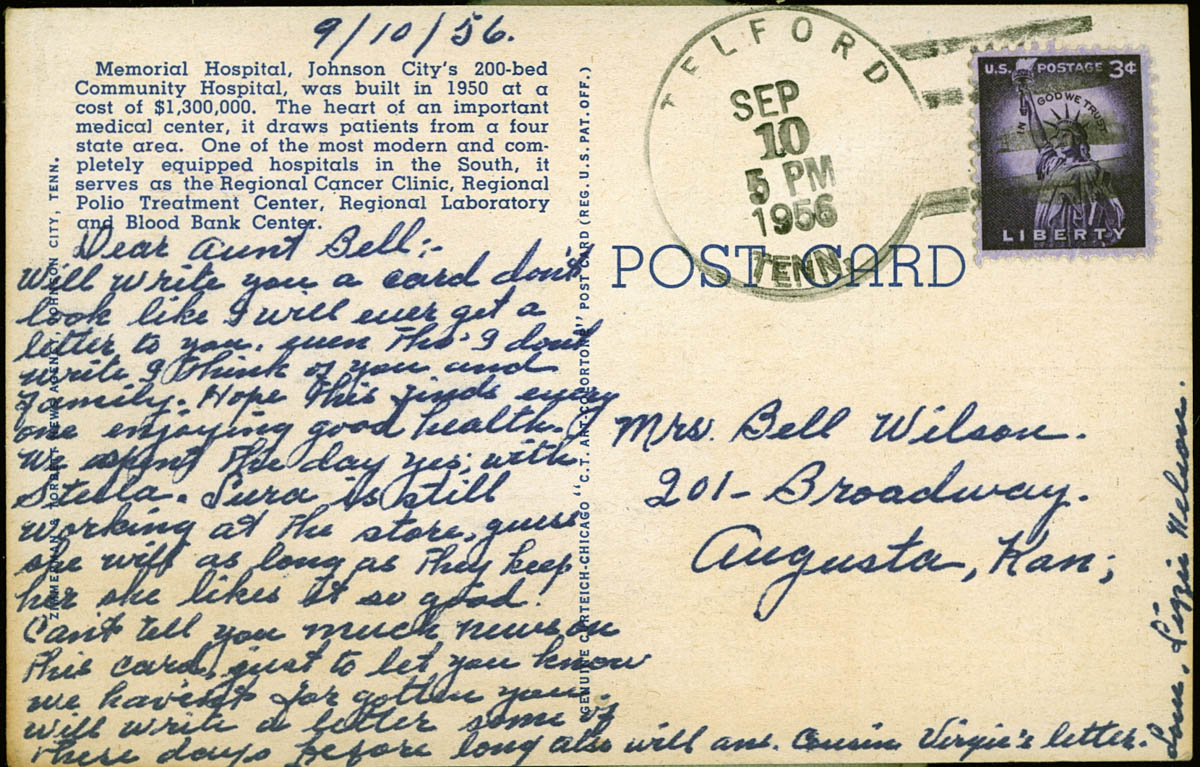 9/10/56.
Memorial Hospital, Johnson City's 200-bed
Community Hospital, was built in 1950 at a
cost of $1,300,000. The heart of an important
medical center, it draws patients from a four
state area. One of the most modern and com-
pletely equipped hospitals in the South, it
serves as the Regional Cancer Clinic, Regional
Polio Treatment Center, Regional Laboratory
and Blood Bank Center.
Dear Aunt Bell:-
Will write you a card don't
look like I will ever get a
letter to you. even Tho' I don't
write I think of you and
family. Hope this finds every
one enjoying good health.
We spent the day yes; with
Stella. Sura is still
working at the store, guess
she will as long as they keep
her she likes it so good.
Can't tell you much news on
this card, just to let you know
we haven't forgotten you.
will write a letter some of
these days before long also will ans. Cousin Virgie's letter.
Love, Lizzie Nelson.
ZIMMERMAN'S TORBETT NEWS AGENCY, JOHNSON CITY, TENN.
GENUINE CURTEICH-CHICAGO "C.T. ART-COLORTONE" POST CARD (REG. U.S. PAT. OFF.)
TELFORD
SEP
10
5 PM
1956
TENN.
U.S. POSTAGE 3¢
IN GOD WE TRUST
LIBERTY
POST CARD
Mrs. Bell Wilson.
201- Broadway.
Augusta, Kan;